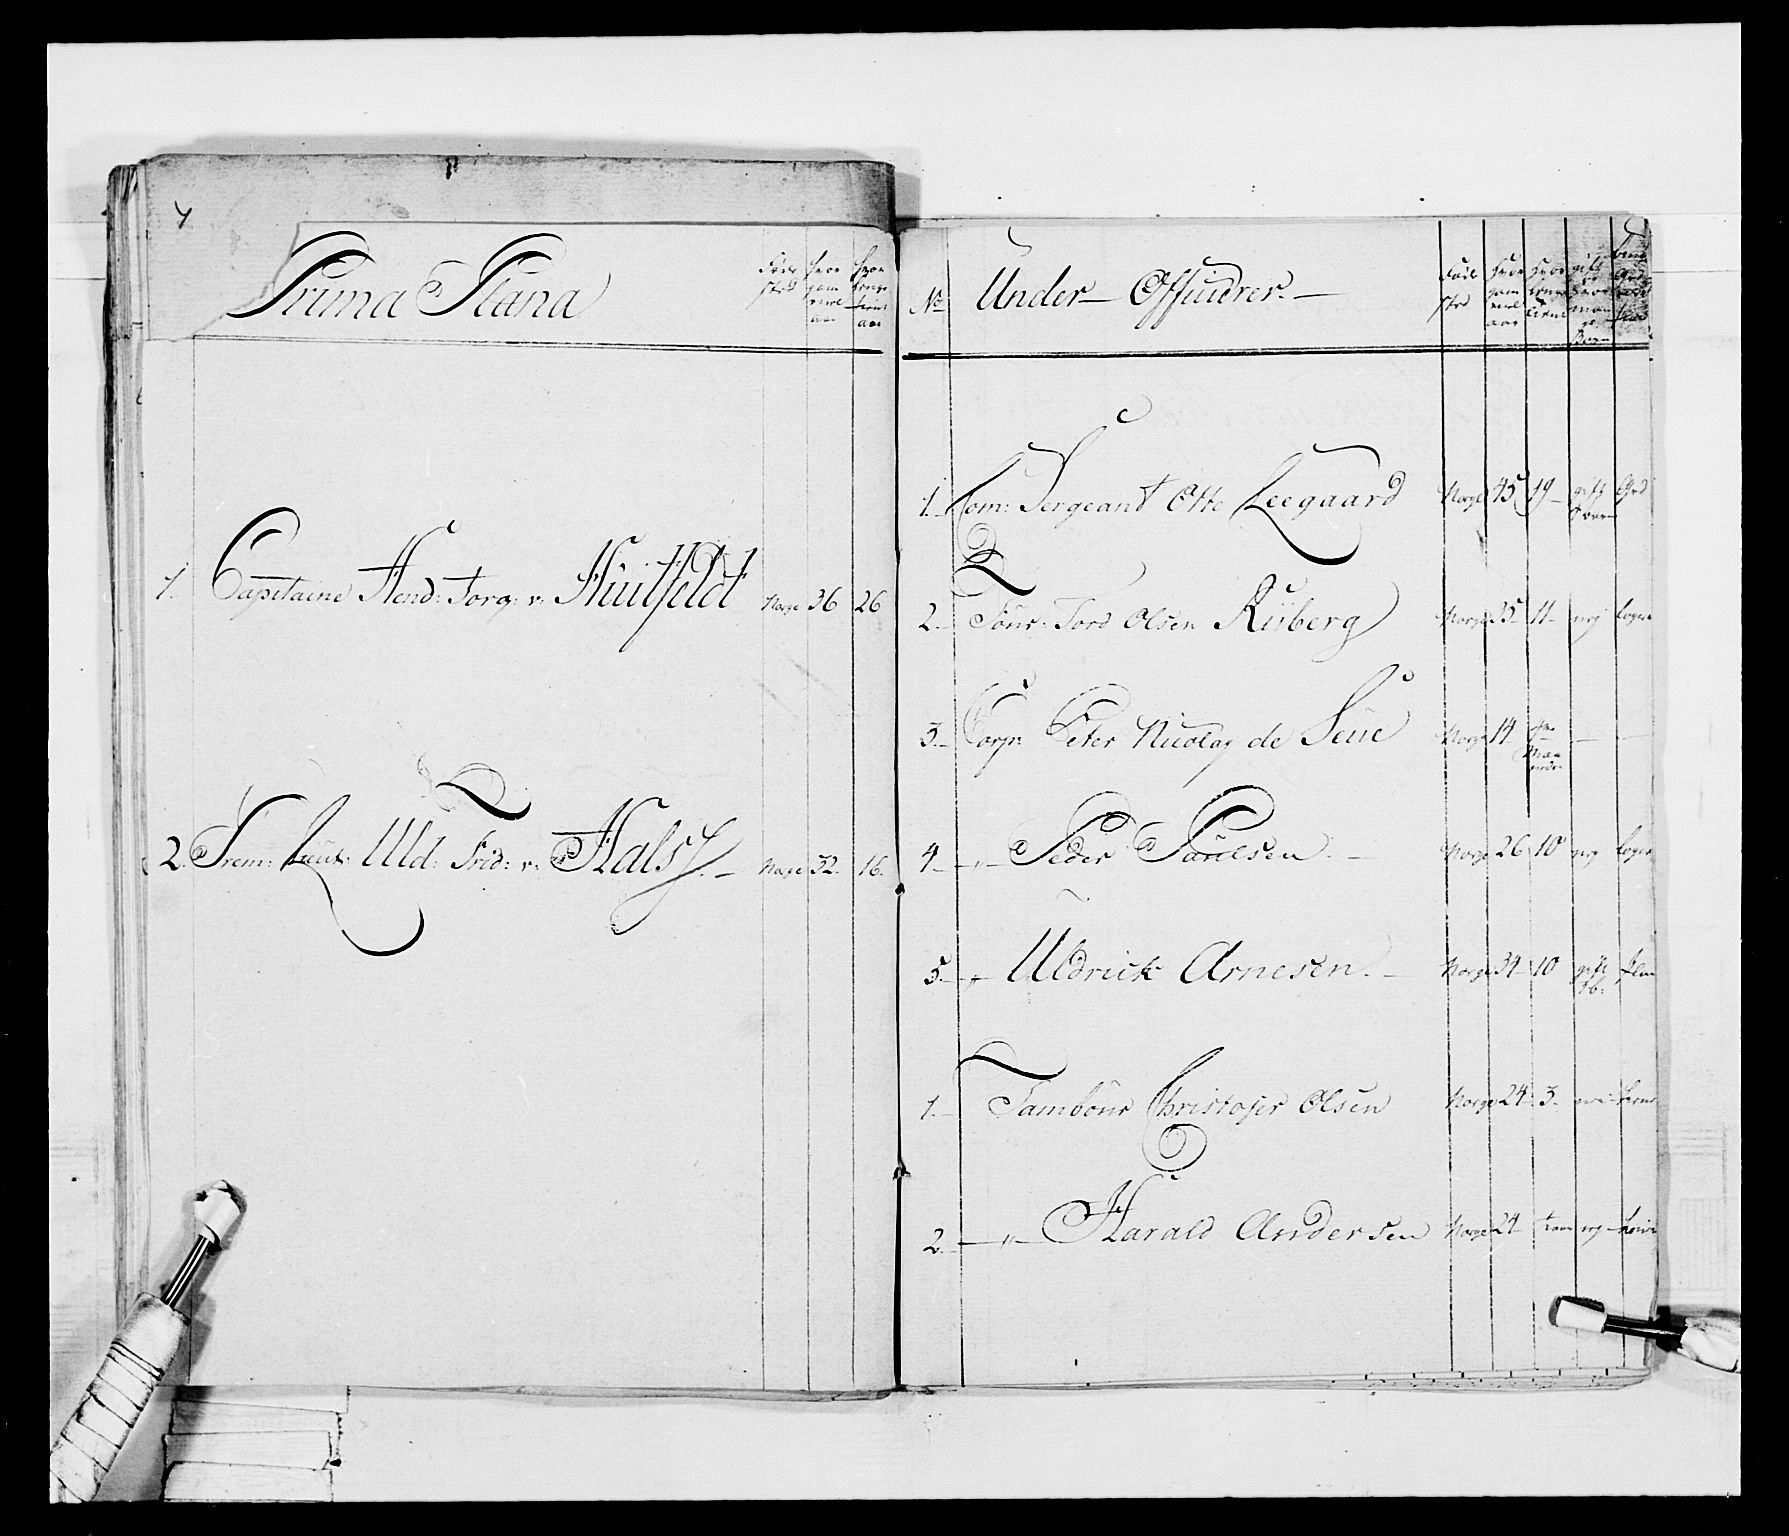 Prima Plana
Føde sted
hvor gam mel aar
hvor længe tient aar
1. Capitaine Hend: Jorg: v: Huitfeldt Norge 36 26
2. Prem: Lieut: Uld: Frid: v: Halsz. – Norge 32. 16.
No Under – Officirer. –
Føde sted
hvor gam mel aar
hvor længe tient
gift hvor mange børn
1. Com: Sergeant Otte Leegaard Norge 45 19 – gift
2. Four: Tord Olsen Riiberg Norge 35 – 11 – nej
3. Corpr: Peter Nicolay de Seue Norge 14 – –
4 – „ – Peder Paulsen. – Norge 26 10 nej
5. – „ Uldrick Arnesen. – Norge 34 – 10 gift
1. Tambour Christofer Olsen Norge 24 3. nei
2. – „ – Harald Andersen Norge 24 – nej